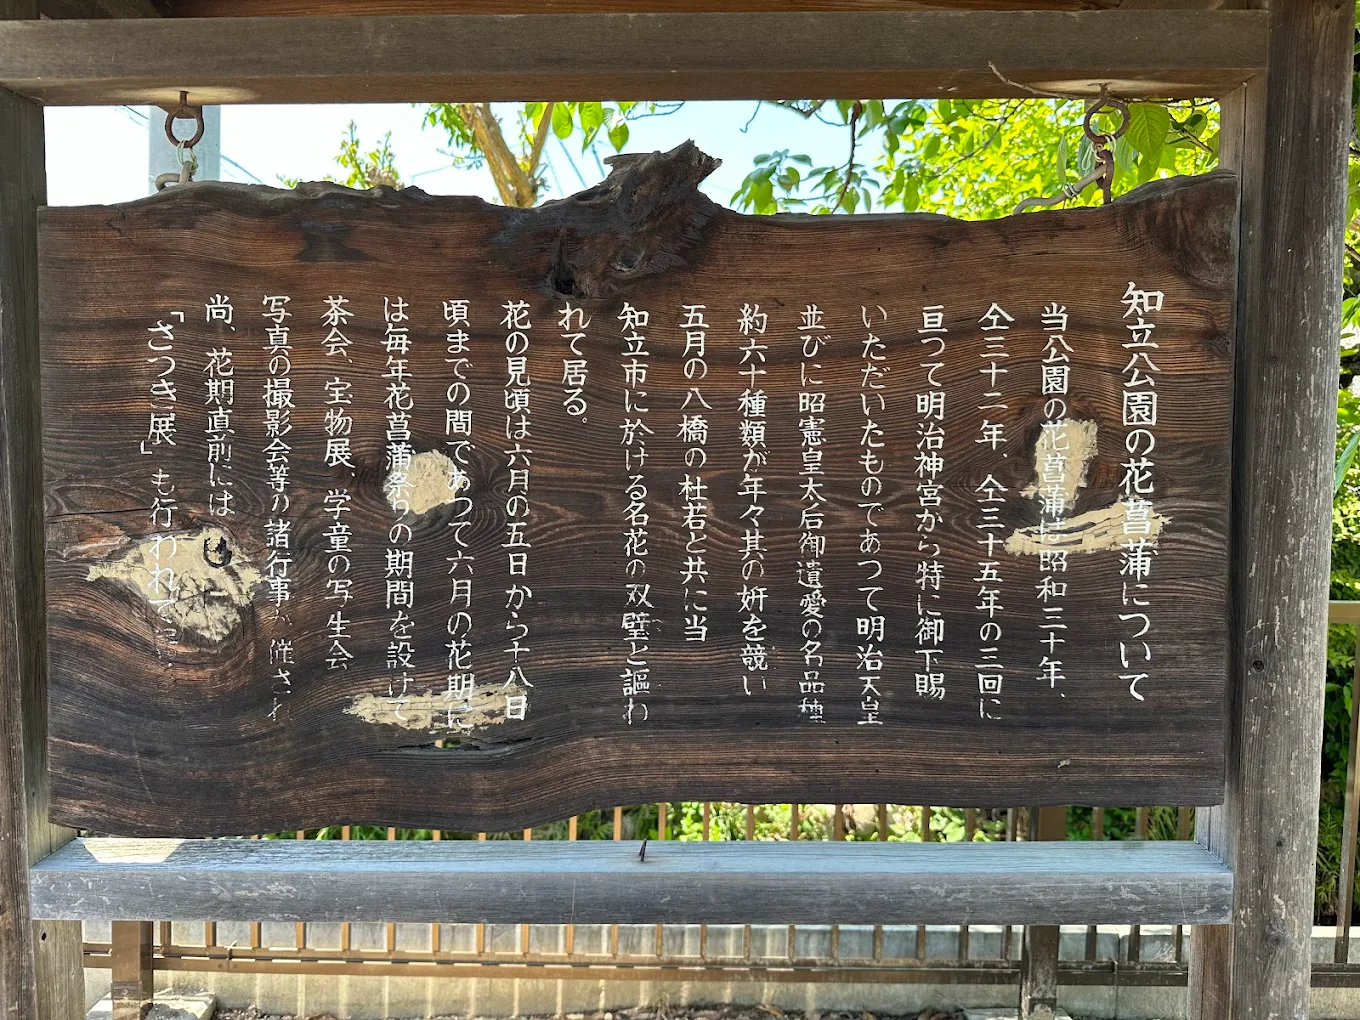 知立公園の花菖蒲について
当公園の花菖蒲は昭和三十年、
仝三十二年、仝三十五年の三回に
亘つて明治神宮から特に御下賜
いただいたものであつて明治天皇
並びに昭憲皇太后御遺愛の名品種
約六十種類が年々其の妍を競い
五月の八橋の杜若と共に当
知立市に於ける名花の双璧と謳わ
れて居る。
花の見頃は六月の五日から十八日
頃までの間であつて六月の花期に
は毎年花菖蒲祭りの期間を設けて
茶会、宝物展、学童の写生会
写真の撮影会等の諸行事が催され
尚、花期直前には
「さつき展」も行われて